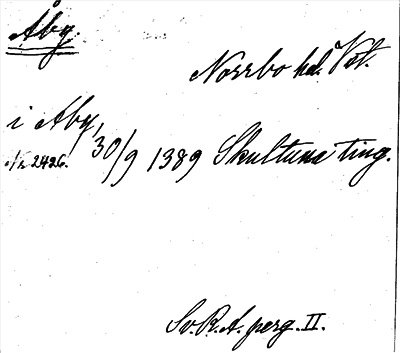 Åby.
Norrbo hd. Vst.
i Aby,
No 2426. 30/9 1389 Skultuna ting.
Sv. R. A. perg. II.